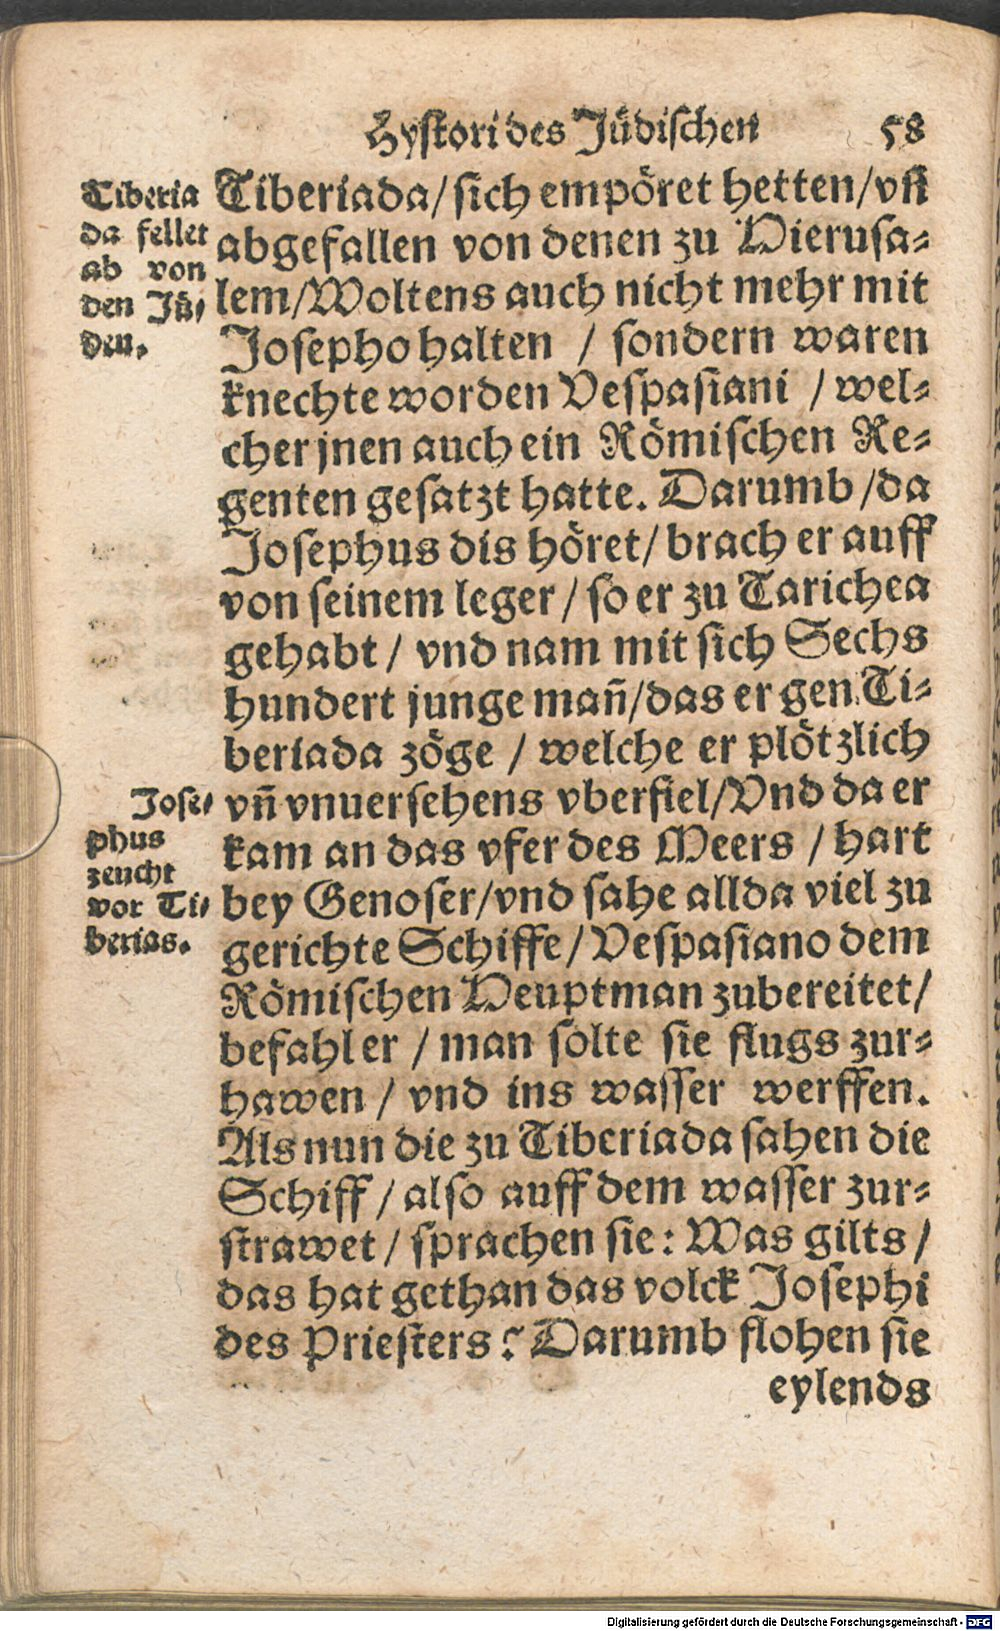 Hystori des Jüdischen 58
Tiberia
da fellet
ab von
den Jü/
den.
Tiberiada/ sich empöret hetten/ vñ
abgefallen von denen zu Hierusa⸗
lem/ Woltens auch nicht mehr mit
Josepho halten / sondern waren
knechte worden Vespasiani / wel⸗
cher jnen auch ein Römischen Re⸗
genten gesatzt hatte. Darumb / da
Josephus dis höret/ brach er auff
von seinem leger / so er zu Tarichea
gehabt / vnd nam mit sich Sechs
hundert junge mañ/ das er gen Ti⸗
beriada zöge / welche er plötzlich
vñ vnuersehens vberfiel/ Vnd da er
kam an das vfer des Meers / hart
bey Genoser/ vnd sahe allda viel zu
gerichte Schiffe/ Vespasiano dem
Römischen Heuptman zubereitet/
befahl er / man solte sie flugs zur⸗
hawen / vnd ins wasser werffen.
Als nun die zu Tiberiada sahen die
Schiff / also auff dem wasser zur⸗
strawet / sprachen sie: Was gilts /
das hat gethan das volck Josephi
des Priesters? Darumb flohen sie
eylends
Jose/
phus
zeucht
vor Ti/
berias.
Digitalisierung gefördert durch die Deutsche Forschungsgemeinschaft - DFG